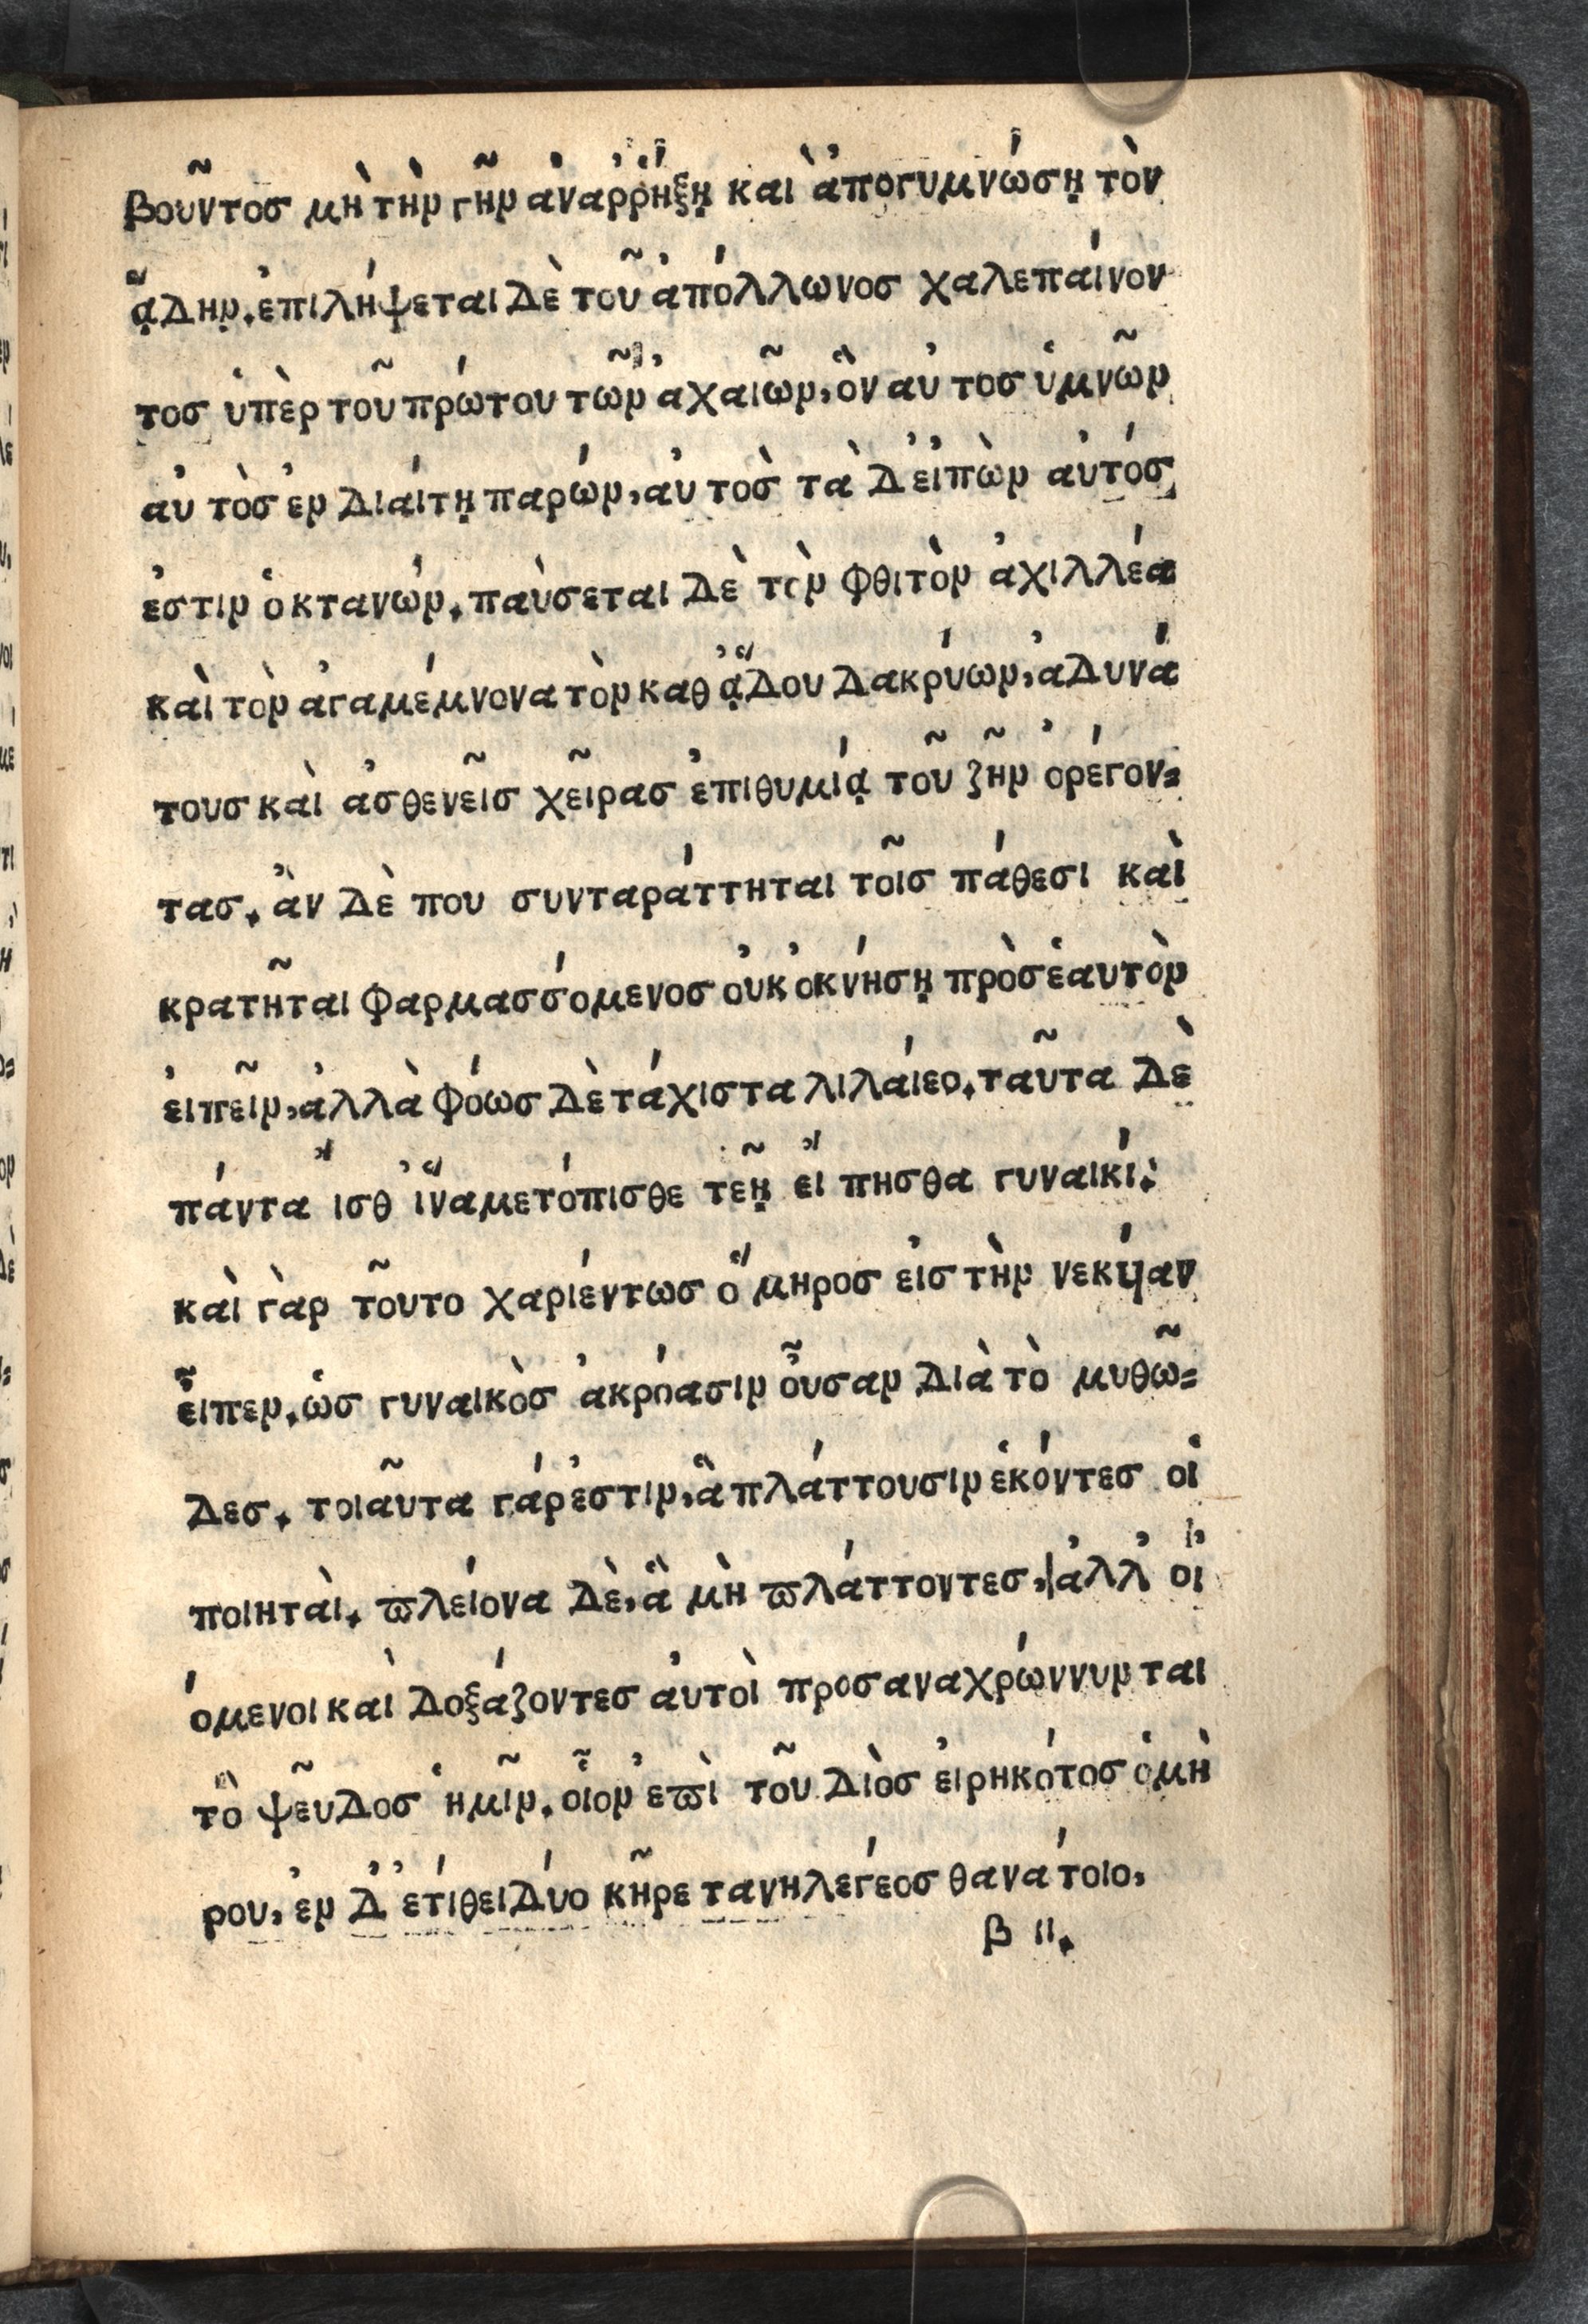 βοῦντοσ μὴ τὴν γῆν ἀναῤῥήξῃ καὶ ἀπογυμνώσῃ τὸν
ᾅδην. ἐπιλήψεται δὲ τοῦ ἀπόλλωνοσ χαλεπαίνον
τοσ ὑπὲρ τοῦ πρώτου τῶν ἀχαιῶν, ὃν αὐ τοσ ὑμνῶν
αὐ τὸσ εν διαίτῃ παρών, αὐ τοσ̀ τὰ δ εἰπὼν αὐτόσ
ἐστιν ὁ κτανών. παὺσεται δὲ τὸν φθιτὸν ἀχιλλέα
καὶ τὸν ἀγαμέμνονα τὸν καθ ᾅδου δακρύων, ἀδυνά
τουσ καὶ ἀσθενεῖσ χεῖρασ ἐπιθυμίᾳ τοῦ ζῆν ὀρέγον=
τασ. ἂν δὲ που συνταράττηται τοῖσ πάθεσι καὶ
κρατῆται φαρμασσόμενοσ οὐκ ὀκνήσῃ πρὸσ ἑαυτὸν
ἐιπεῖν, ἀλλὰ φόωσ δὲ τάχιστα λιλάιεο. ταῦτα δὲ
πάντα ἴσθ ἵναμετόπισθε τεῇ εἴ πησθα γυναικί.
καὶ γὰρ τοῦτο χαριέντωσ ὅ μηροσ εἰσ τὴν νεκύιαν
εἶπεν. ὡσ γυναικὸσ ἀκρόασιν οὖσαν διὰ τὸ μυθῶ=
δεσ. τοιαῦτα γάρ ἐστιν, ἃ πλάττουσιν ἑκόντεσ οἱ
ποιηταὶ. πλείονα δὲ, ἃ μὴ πλάττοντεσ, ἀλλ̓ οἰ
όμενοι καὶ δοξάζοντεσ ἀυτοὶ προσαναχρώννυν ται
τὸ ψεῦδοσ ἡμῖν. οἷον ἐπὶ τοῦ διὸσ ἐιρηκότοσ ὁμὴ
ρου, ἐν δ̓ ἐτίθει δύο κῆρε τανηλεγέοσ θανάτοιο,
β ιι.